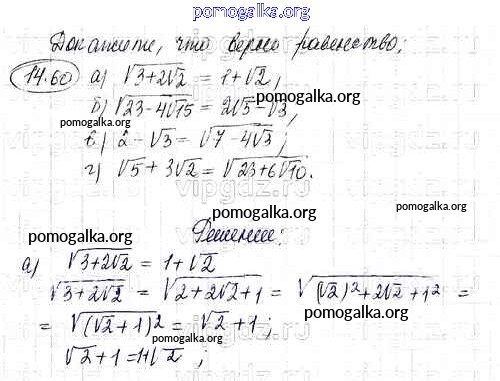 pomogalka.org
Докажите, что верно равенство:
14.60 а) √(3+2√2) = 1+√2;
б) √(23-4√15) = 2√5-√3,
pomogalka.org
pomogalka.org
в) 2-√3 = √(7-4√3);
г) √5+3√2 = √(23+6√10).
vipgdz.ru
pomogalka.org
pomogalka.org
Решение:
pomogalka.org
а) √(3+2√2) = 1+√2
√(3+2√2) = √(2+2√2+1) = √((√2)²+2√2+1²) =
= √((√2+1)²) = √2+1;
pomogalka.org
pomogalka.org
√2+1=1+√2;